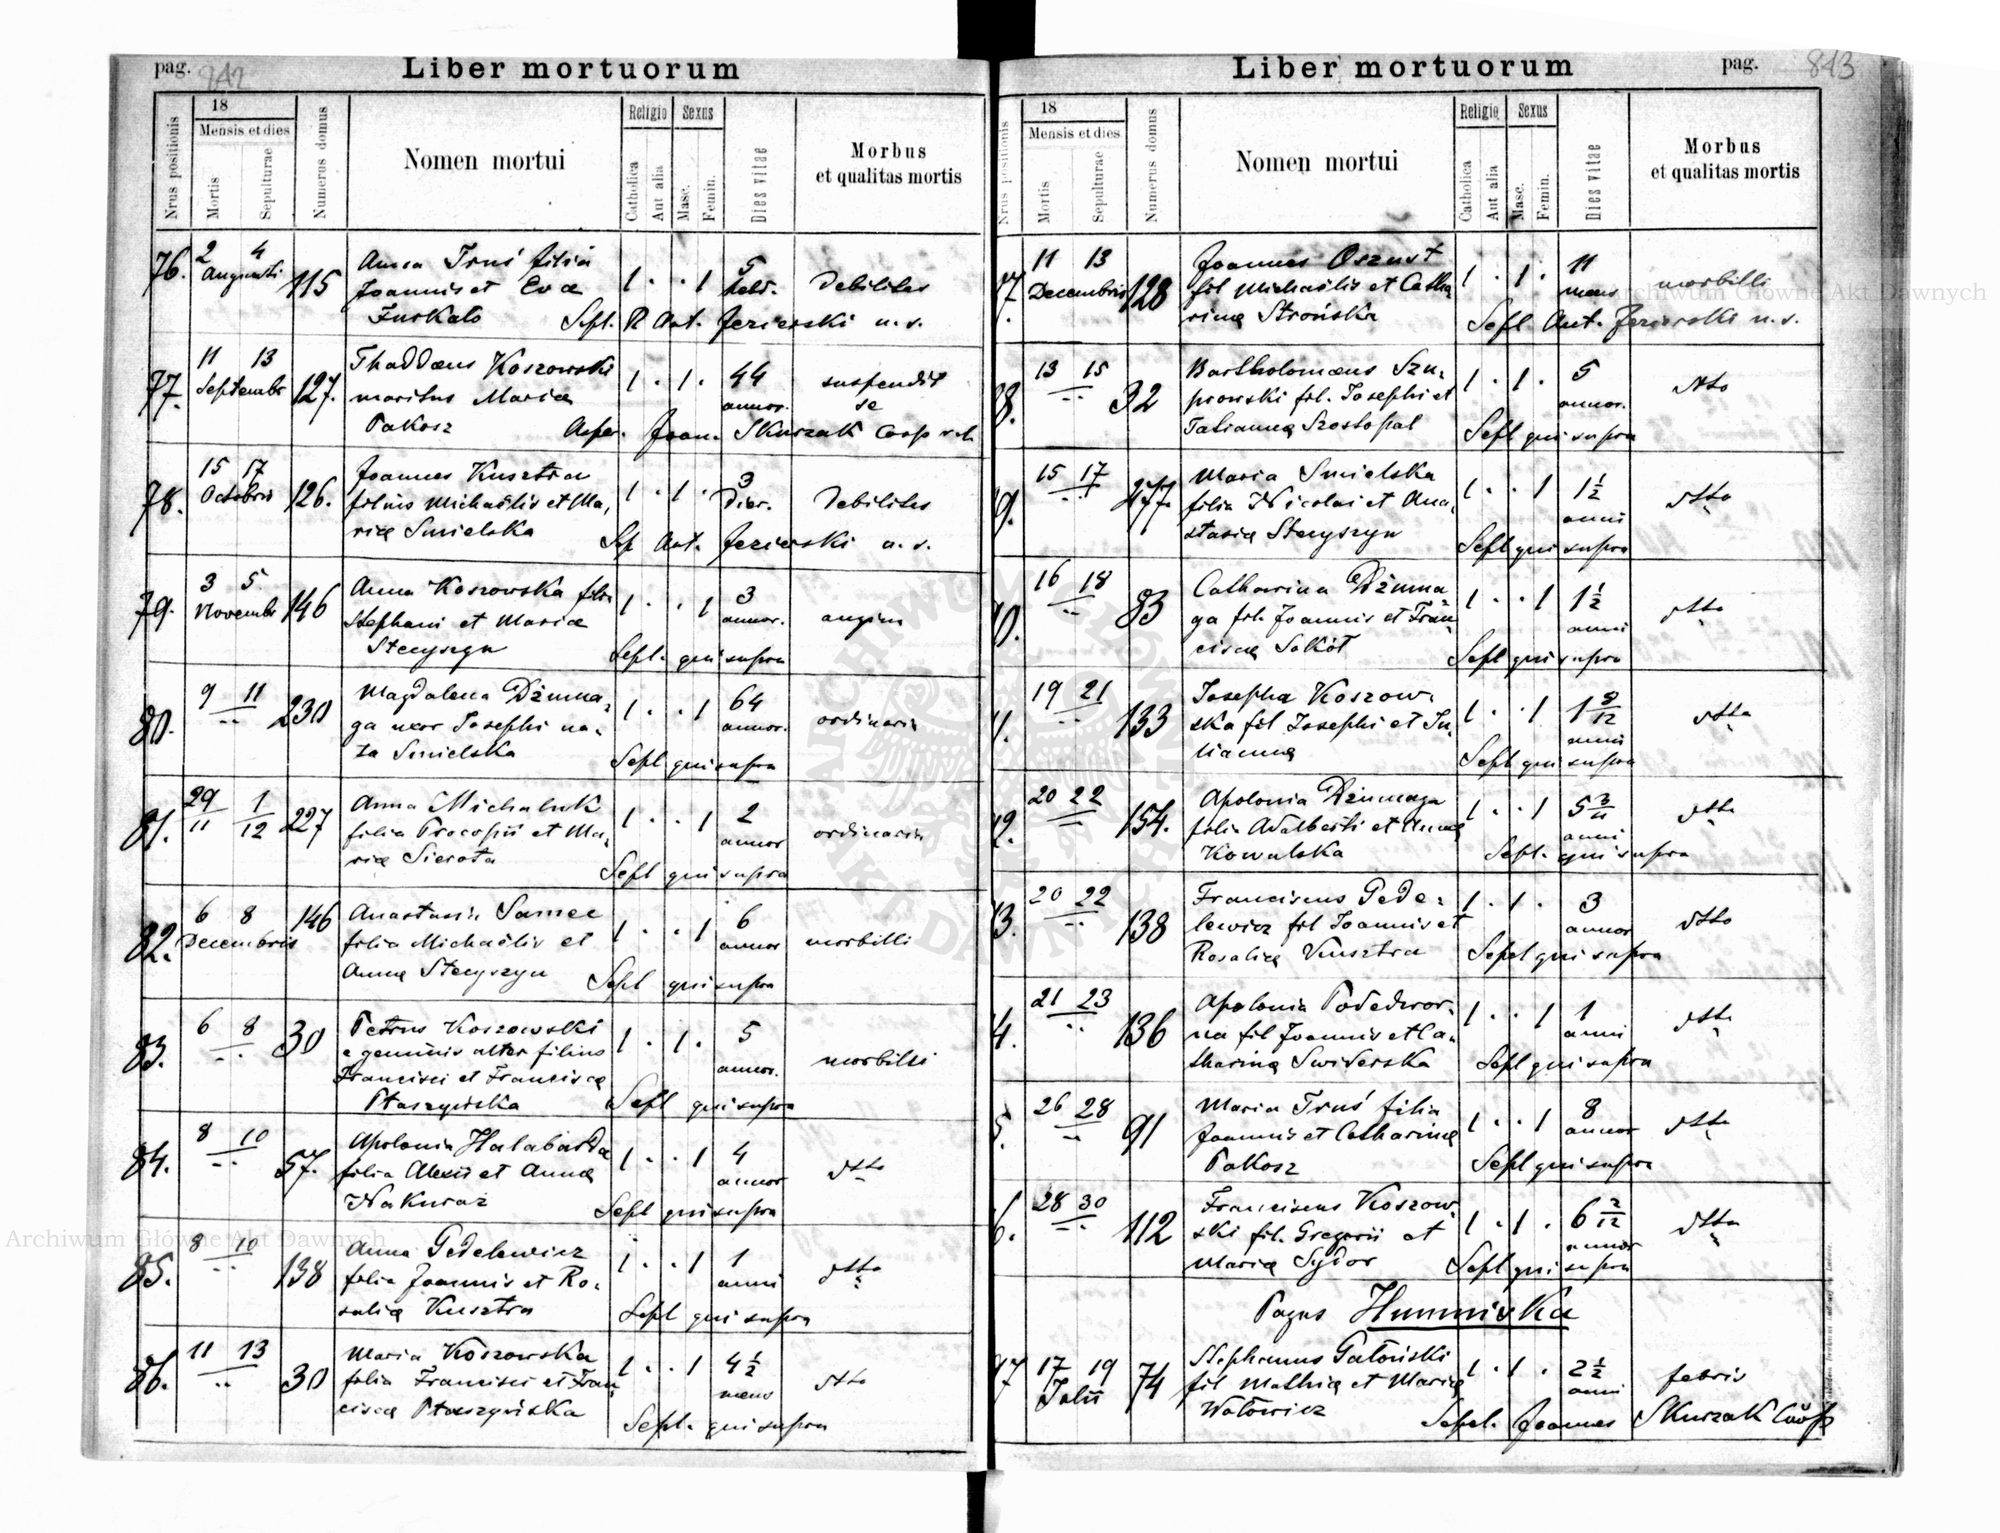 pag. 842 Liber mortuorum
Nrus positionis
18
Mensis et dies
Mortis
Sepulturae
Numerus domus
Nomen mortui
Religio
Catholica
Aut alia
Sexus
Masc.
Femin.
Dies vitae
Morbus
et qualitas mortis
76. 2 4 Augusti 115 Anna Truś filia 1 . . 1 5 Debilitas
Joannis et Eva
Furkało Sepl. R Ant. Jezierski
77. 11 13 Septembr 127. Thaddæus Koszowski 1 . 1 . 44 annor. suspendit se
maritus Mariæ
Pakosz Joan. Skurzak Coop
78. 15 17 Octobris 126. Joannes Kusztra 1 . 1 . 3 Dier. Debilitas
filius Michaëlis et Ma,
riæ Smielska Sp Ant. Jezierski
79. 3 5 Novembr 146 Anna Koszowska filia 1 . . 1 3 annor. angina
Stephani et Mariæ
Stecyszyn Sepl. qui supra
80. 9 11 230 Magdalena Dżuma, 1 . . 1 64 annor. ordinaria
ga uxor Josephi na,
ta Smielska Sepl qui supra
81. 29/11 1/12 227 Anna Michaluk 1 . . 1 2 annor ordinaria
filia Procopii et Ma,
riæ Sierota Sepl qui supra
82. 6 8 Decembris 146 Anastasia Samec 1 . . 1 6 annor morbilli
filia Michaëlis et
Annæ Stecyszyn Sepl qui supra
83. 6 8 30 Petrus Koszowski 1 . 1 . 5 annor. morbilli
e geminis alter filius
Francisci et Franciscæ
Ptaszyńska Sepl qui supra
84. 8 10 57. Apolonia Halabarda 1 . . 1 4 annor dtto
filia Alexii et Annæ
Nakuraż Sepl qui supra
85. 8 10 138 Anna Gedelewicz 1 . . 1 1 anni dtto
filia Joannis et Ro,
saliæ Kusztra Sepl qui supra
86. 11 13 30 Maria Koszowska 1 . . 1 4 1/2 mens dtto
filia Francisci et Fran
ciscæ Ptaszyńska Sepl. qui supra
Liber mortuorum pag. 843
Nrus positionis
18
Mensis et dies
Mortis
Sepulturae
Numerus domus
Nomen mortui
Religio
Catholica
Aut alia
Sexus
Masc.
Femin.
Dies vitae
Morbus
et qualitas mortis
7. 11 13 Decembris 128 Joannes Oszust 1 . 1 . 11 mens morbilli
fil Michaëlis et Catha,
rinæ Strońska Sepl Ant. Jezierski
8. 13 15 32 Bartholomæus Szu, 1 . 1 . 5 annor. dtto
prowski fil. Josephi et
Tatiannæ Szostopal Sepl qui supra
9. 15 17 277. Maria Smielska 1 . . 1 1 1/2 anni dtto
filia Nicolai et Ana,
stasiæ Stecyszyn Sepl qui supra
0. 16 18 83 Catharina Dżuma, 1 . . 1 1 1/2 anni dtto
ga fil. Joannis et Fran,
ciscæ Sokół Sepl qui supra
1. 19 21 133 Josepha Koszow, 1 . . 1 1 8/12 anni dtto
ska fil Josephi et Ju,
liannæ Sepl qui supra
2. 20 22 154. Apolonia Dżumaga 1 . . 1 5 anni dtto
filia Adalberti et Annæ
Kowalska Sepl. qui supra
3. 20 22 138 Franciscus Gede, 1 . 1 . 3 annor dtto
lewicz fil Joannis et
Rosaliæ Kusztra Sepel qui supra
4. 21 23 136 Apolonia Podedwor, 1 . . 1 1 anni dtto
na fil Joannis et Ca,
tharinæ Swiderska Sepl qui supra
5. 26 28 91 Maria Truś filia 1 . . 1 8 annor dtto
Joannis et Catharinæ
Pakosz Sepl qui supra
6. 28 30 112 Franciscus Koszow, 1 . 1 . 6 2/12 annor dtto
ski fil. Gregorii et
Mariæ Sydor Sepl qui supra
Pagus Humniska
97 17 19 Julii 74 Stephanus Gatoński 1 . 1 . 2 1/2 anni febris
fil Mathiæ et Mariæ
Watowicz Sepel. Joannes Skurzak Coop
Archiwum Główne Akt Dawnych
Archiwum Główne Akt Dawnych
ARCHIWUM GŁÓWNE AKT DAWNYCH